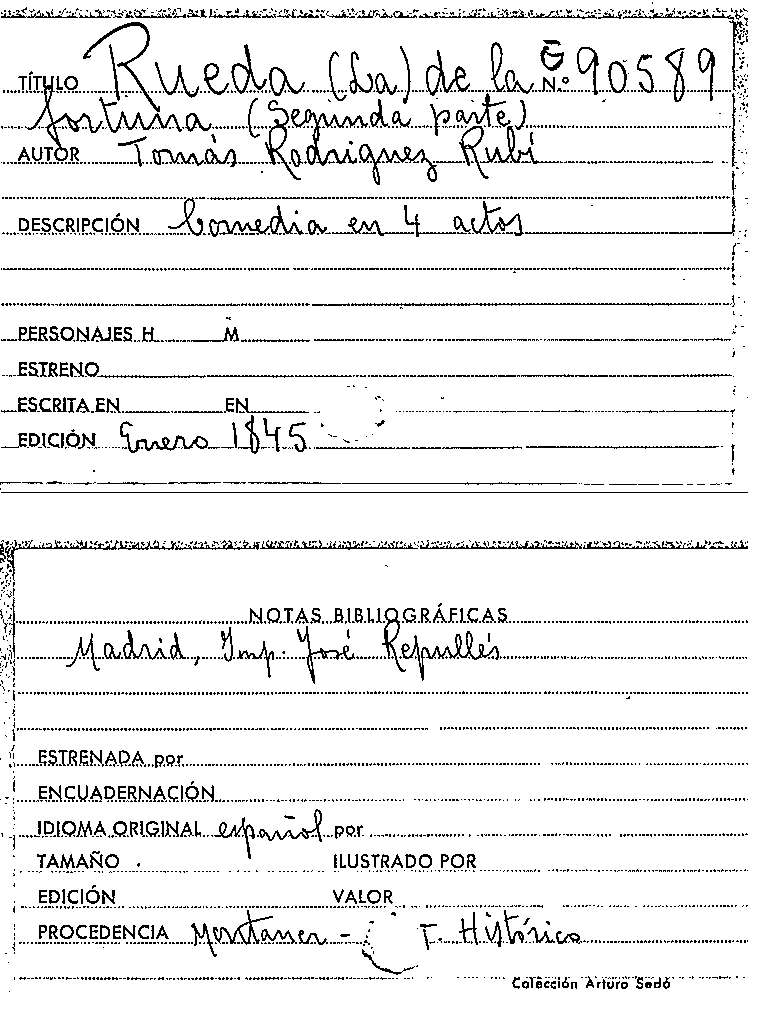 TÍTULO Rueda (La) de la N.º 90589
fortuna (Segunda parte)
AUTOR Tomás Rodriguez Rubí
DESCRIPCIÓN Comedia en 4 actos
PERSONAJES H M
ESTRENO
ESCRITA EN EN
EDICIÓN Enero 1845
NOTAS BIBLIOGRÁFICAS
Madrid, Imp. José Repullés
ESTRENADA por
ENCUADERNACIÓN
IDIOMA ORIGINAL español por
TAMAÑO ILUSTRADO POR
EDICIÓN VALOR
PROCEDENCIA Montaner - T. Histórico
Colección Arturo Sedó